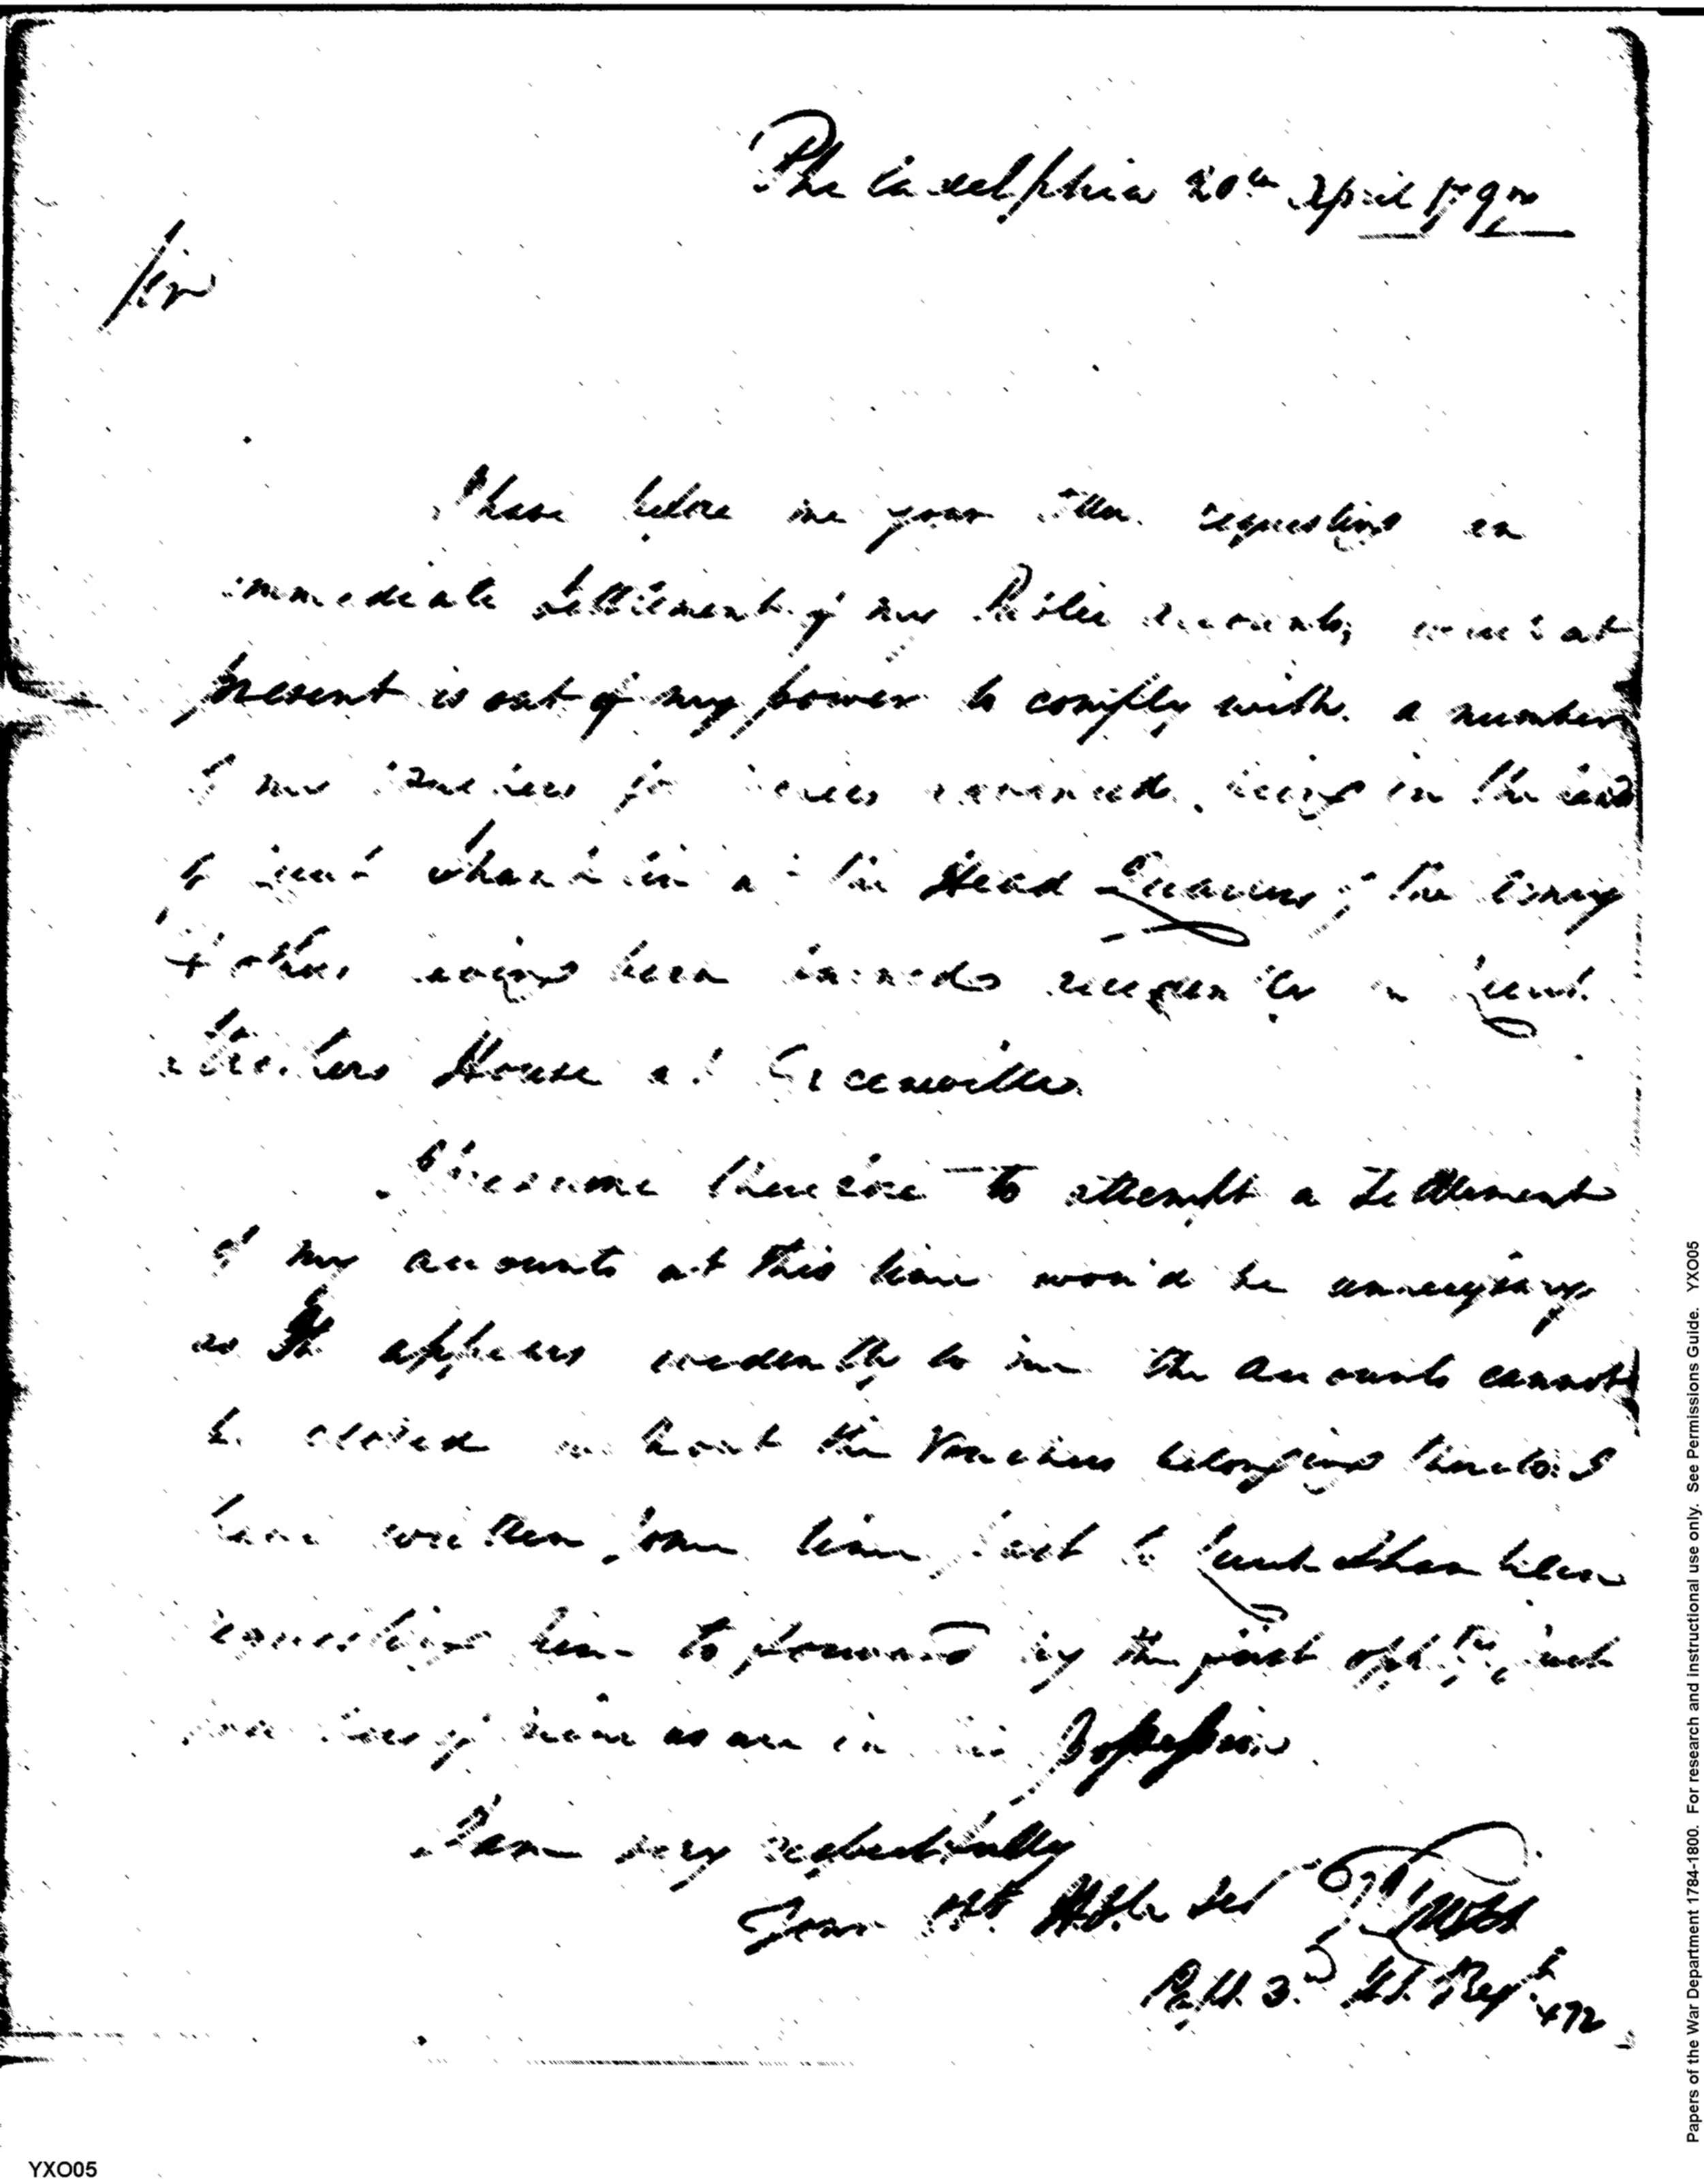 Philadelphia 20th April 179
Sir
I have before me your letter requesting an
immediate Settlement of my Public accounts, which at
present is out of my power to comply with. a number
of my Vouchers for monies advanced, being in the
of Lieut at the Head Quarters of the Army
& others having been in Lieut.
House at Greenville
I presume therefore to attempt a Settlement
of my accounts at this time wou'd be unnecessary
as It appears evidently to me the accounts cannot
be closed without the Vouchers belonging thereto. I
have written some time past to Lieut
requesting him to forward by the first oppty. such
of mine as are in his Possession.
I am very respectfully
Your Ob. Hble Ser
3d Regt
Papers of the War Department 1784-1800. For research and instructional use only. See Permissions Guide. YXO05
YXO05